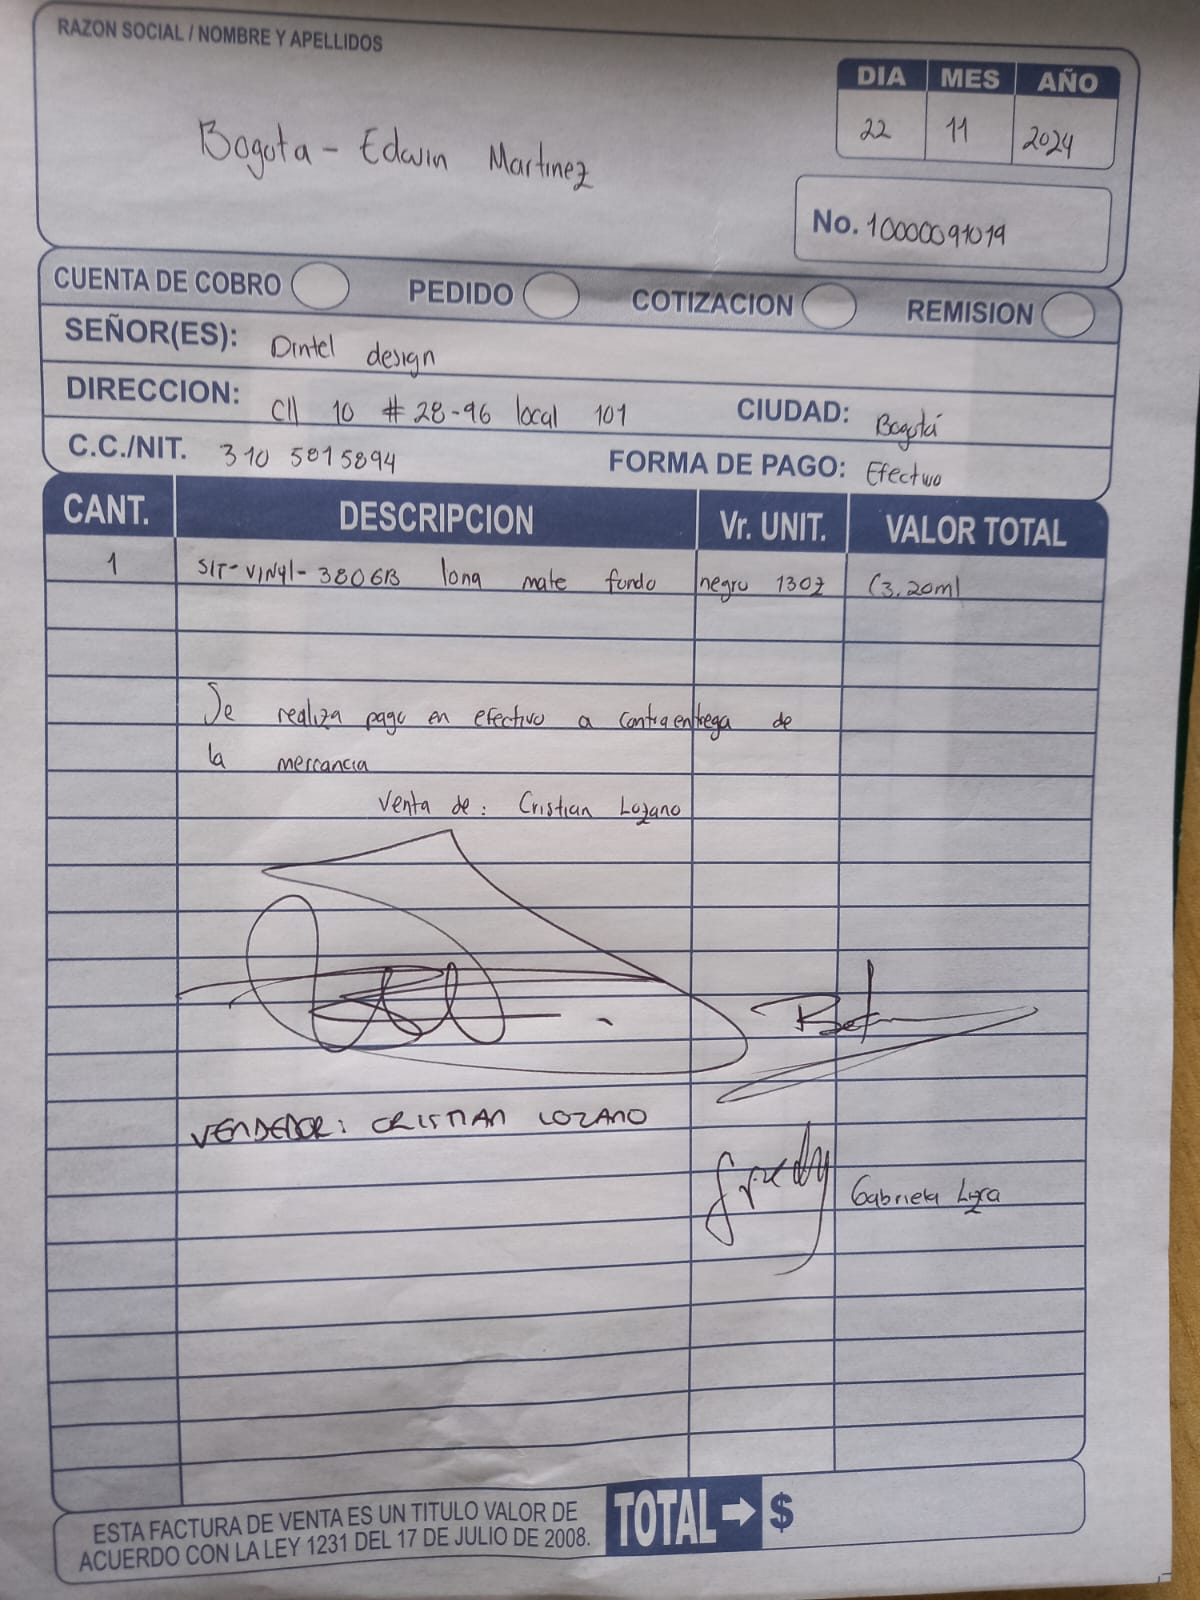 RAZON SOCIAL / NOMBRE Y APELLIDOS
DIA MES AÑO
22 11 2024
Bogota - Edwin Martinez
No. 10000091019
CUENTA DE COBRO PEDIDO COTIZACION REMISION
SEÑOR(ES): Dintel design
DIRECCION: Cll 10 # 28-96 local 101 CIUDAD: Bogotá
C.C./NIT. 310 5815894 FORMA DE PAGO: Efectivo
CANT. DESCRIPCION Vr. UNIT. VALOR TOTAL
1 SIT-VINYL-3806B lona mate fondo negro 13oz (3.20m)
Se realiza pago en efectivo a contraentrega de
la mercancia
Venta de: Cristian Lozano
VENDEDOR: CRISTIAN LOZANO
Fredy Gabriela
ESTA FACTURA DE VENTA ES UN TITULO VALOR DE
ACUERDO CON LA LEY 1231 DEL 17 DE JULIO DE 2008.
TOTAL → $